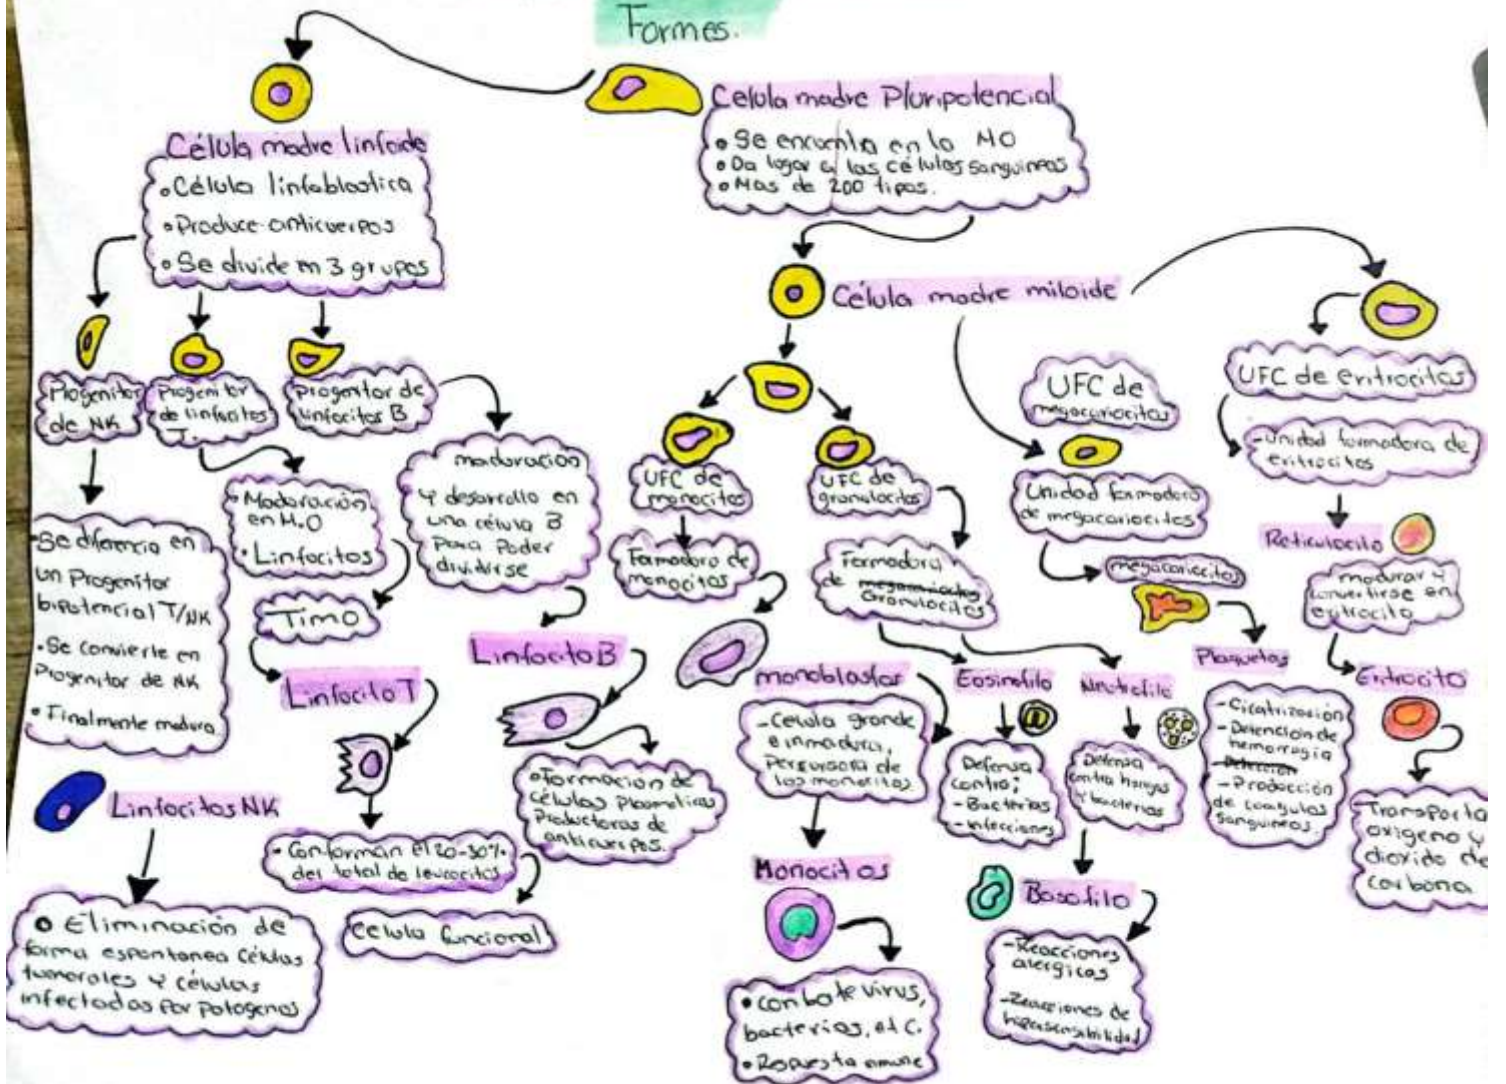 Formes.
Celula madre Pluripotencial
• Se encuentra en la MO
• Da lugar a las células sanguineas
• Mas de 200 tipos.
Célula madre linfoide
• Célula linfoblastica
• Produce anticuerpos
• Se divide en 3 grupos
Progenitor
de NK
Progenitor
de linfocitos
T.
Progenitor de
linfocitos B
• Se diferencia en
un Progenitor
bipotencial T/NK
• Se convierte en
Progenitor de NK
• Finalmente madura
Linfocitos NK
• Eliminación de
forma espontanea Células
tumorales y células
infectadas por patogenos
• Maduración
en M.O
• Linfocitos
Timo
Linfocito T
• Conforman el 20-30%
del total de leucocitos
celula funcional
maduración
y desarrollo en
una célula B
para poder
dividirse
Linfocito B
• Formación de
células plasmaticas
Productoras de
anticuerpos.
Célula madre miloide
UFC de
monocitos
Formadora de
monocitos
monoblastos
- Celula grande
e inmadura,
Percusora de
los monocitos.
Monocitos
• combate virus,
bacterias, etc.
• Respuesta inmune
UFC de
granulocitos
Formadora
de megacariocitos
Granulocitos
Eosinofilo
Defensa
contra:
- Bacterias
- infecciones
Neutrofilo
Defensa
contra hongos
y bacterias
Basofilo
- Reacciones
alergicas
- Reacciones de
hipersensibilidad
UFC de
megacariocitos
Unidad formadora
de megacariocitos
megacariocitos
Plaquetas
- Cicatrización
- Detención de
hemorragia
- Detección
- Producción
de coagulos
sanguineos.
UFC de eritrocitos
- Unidad formadora de
eritrocitos
Reticulocito
madurar y
convertirse en
eritrocito
Eritrocito
- Transporta
oxigeno y
dioxido de
carbono